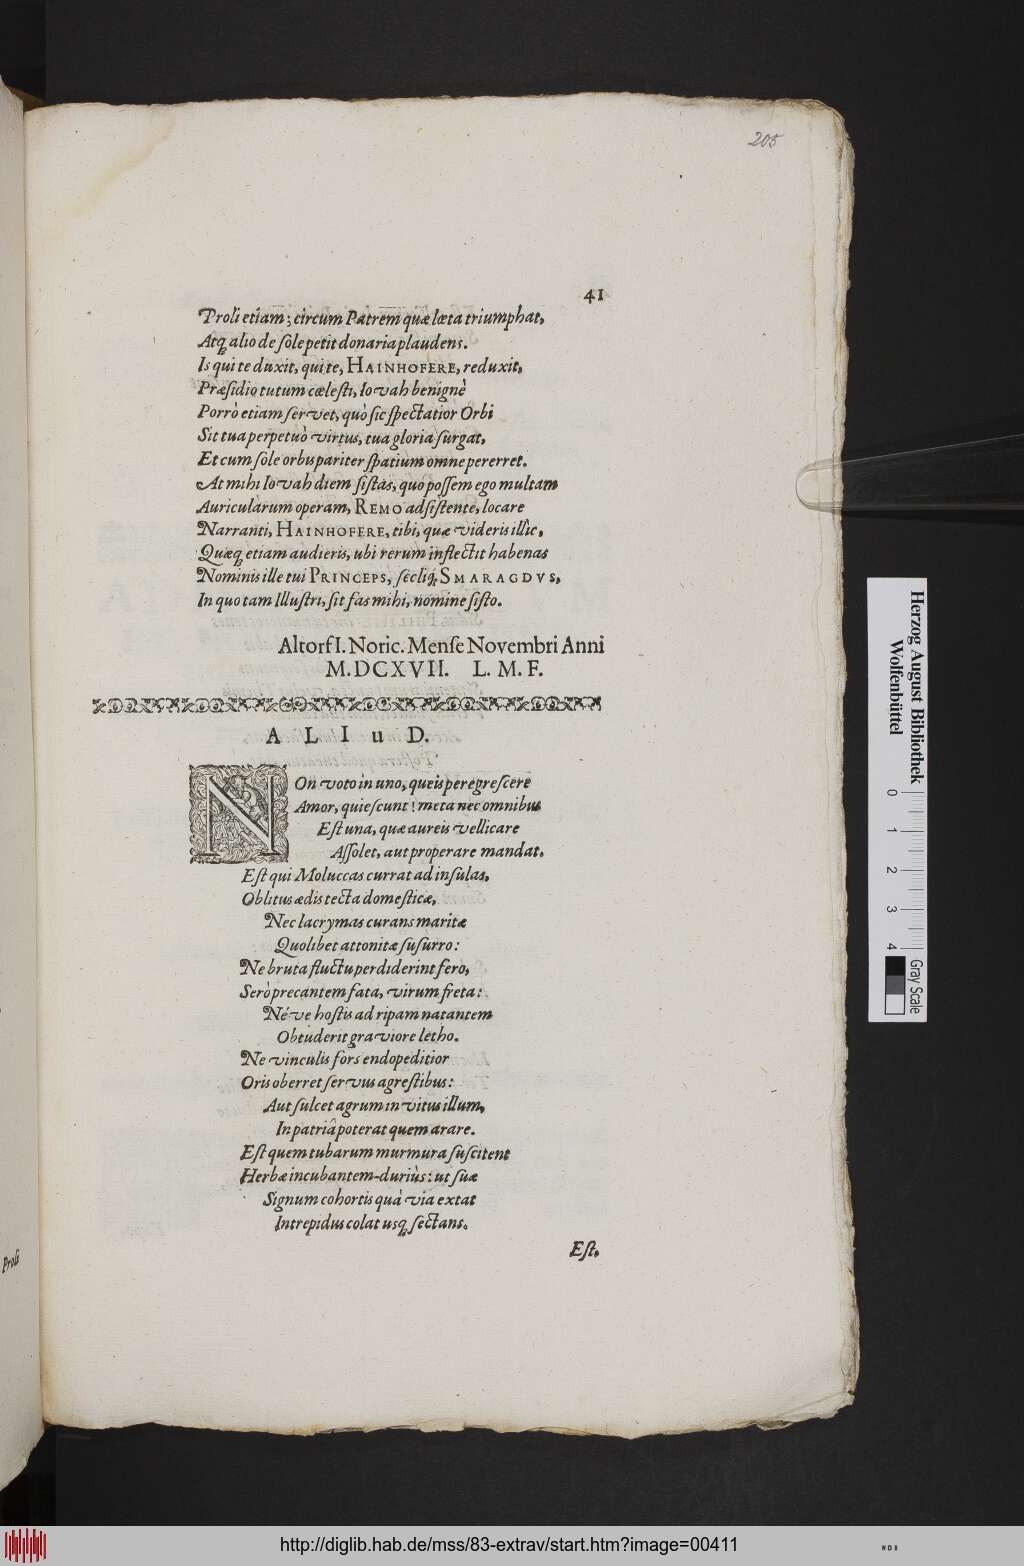 205
41
Proli etiam; circum Patrem quæ læta triumphat,
Atq; alio de sole petit donaria plaudens.
Is qui te duxit, qui te, HAINHOFERE, reduxit,
Præsidio tutum cœlesti, Iovah benignè
Porrò etiam servet, quò sic spectatior Orbi
Sit tua perpetuò virtus, tua gloria surgat,
Et cum sole orbus pariter spatium omne pererret.
At mihi Iovah diem sistas, quo possem ego multam
Auricularum operam, REMO adsistente, locare
Narranti, HAINHOFERE, tibi, quæ videris illîc,
Quæq; etiam audieris, ubi rerum inflectit habenas
Nominis ille tui PRINCEPS, seclíq; SMARAGDVS,
In quo tam Illustri, sit fas mihi, nomine sisto.
Altorf I. Noric. Mense Novembri Anni
M.DCXVII. L. M. F.
ALIuD.
NOn voto in uno, queis peregrescere
Amor, quiescunt! meta nec omnibus
Est una, quæ aureis vellicare
Assolet, aut properare mandat.
Est qui Moluccas currat ad insulas,
Oblitus ædis tecta domesticæ,
Nec lacrymas curans maritæ
Quolibet attonitæ susurro:
Ne bruta fluctu perdiderint fero,
Serò precantem fata, virum freta:
Néve hostis ad ripam natantem
Obtuderit graviore letho.
Ne vinculis fors endopeditior
Oris oberret servus agrestibus:
Aut sulcet agrum invitus illum,
In patriâ poterat quem arare.
Est quem tubarum murmura suscitent
Herbæ incubantem-duriùs: ut suæ
Signum cohortis quà via extat
Intrepidus colat usq; sectans.
Est,
Proli
Herzog August Bibliothek
Wolfenbüttel
0 1 2 3 4
Gray Scale
http://diglib.hab.de/mss/83-extrav/start.htm?image=00411
WDB